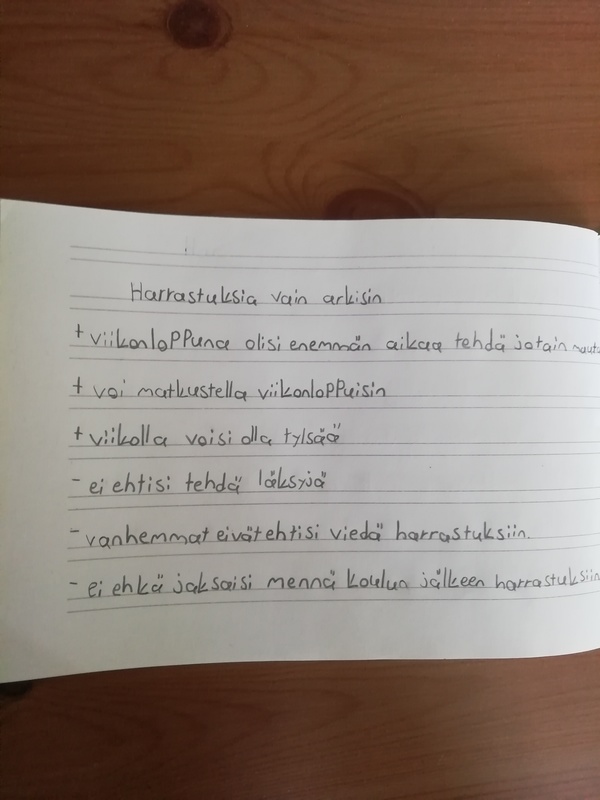 Harrastuksia vain arkisin
+ viikonloppuna olisi enemmän aikaa tehdä jotain
+ voi matkustella viikonloppuisin
+ viikolla voisi olla tylsää
- ei ehtisi tehdä läksyjä
- vanhemmat eivät ehtisi viedä harrastuksiin.
- ei ehkä jaksaisi mennä koulun jälkeen harrastuksiin